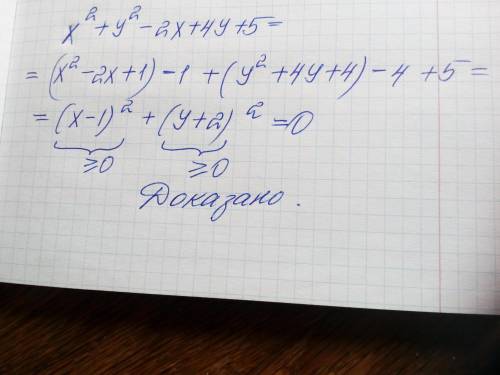 x² + y² - 2x + 4y + 5 =
= (x² - 2x + 1) - 1 + (y² + 4y + 4) - 4 + 5 =
= (x-1)² + (y+2)² = 0
⩾0 ⩾0
Доказано.